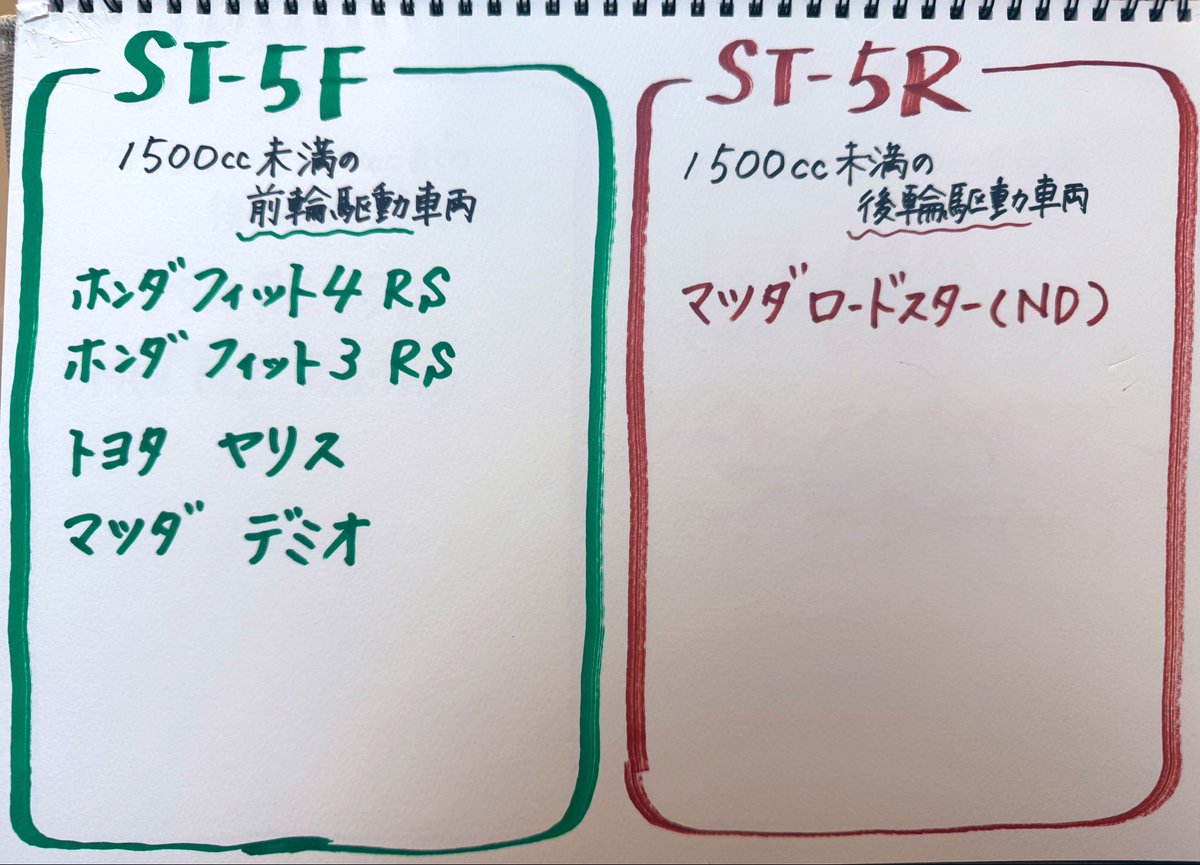 ST-5F
1500cc未満の
前輪駆動車両
ホンダフィット4 RS
ホンダ フィット3 RS
トヨタ ヤリス
マツダ デミオ
ST-5R
1500cc未満の
後輪駆動車両
マツダ ロードスター(ND)